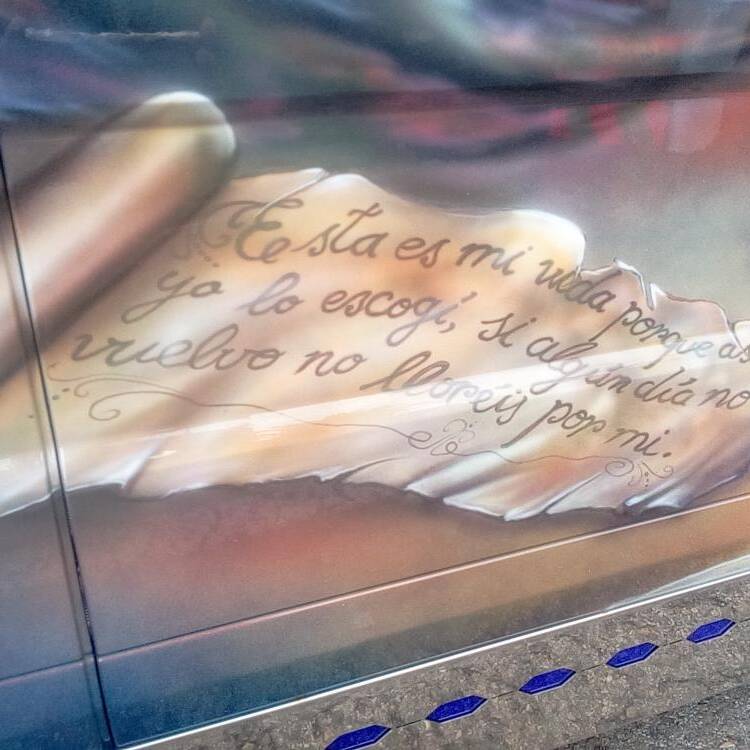 Esta es mi vida porque as
yo lo escogí, si algún día no
vuelvo no lloréis por mi.